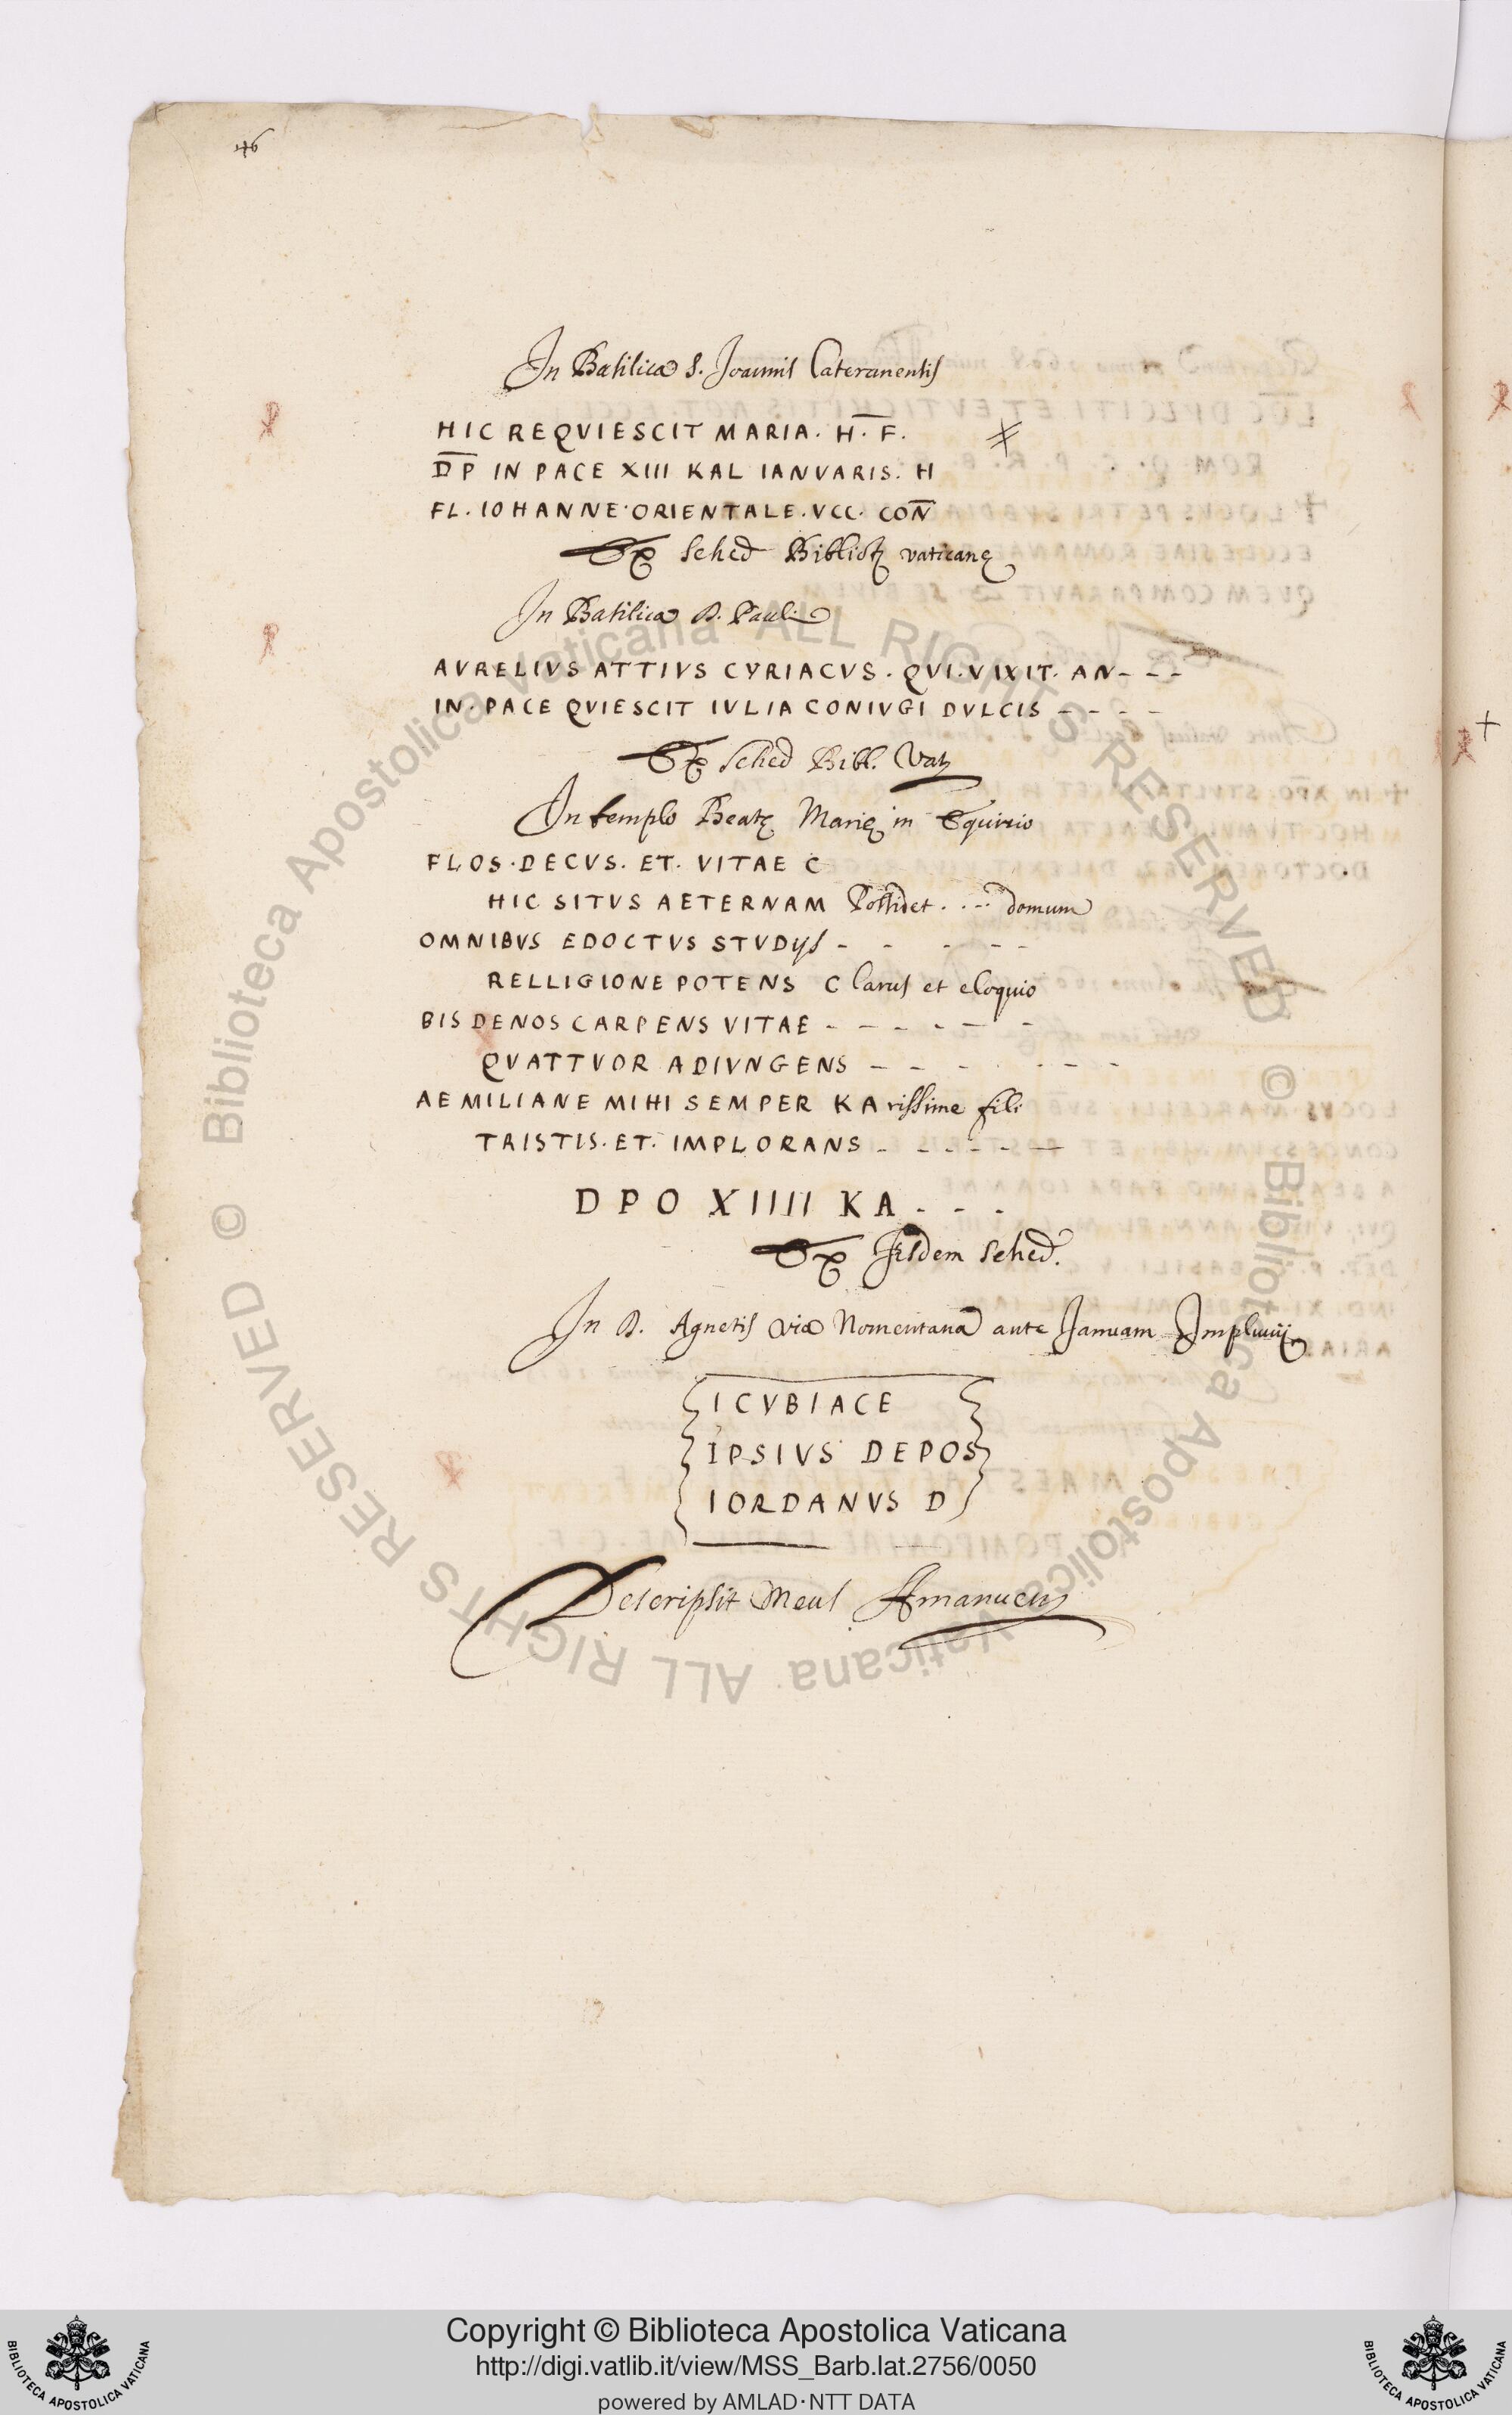 46
In Basilica S. Joannis Lateranensis
HIC REQVIESCIT MARIA. H. F.
DP IN PACE XIII KAL IANVARIS. H
FL. IOHANNE·ORIENTALE. VCC. CON̅
Ex Sched Bibliot vaticanę
In Basilica D. Pauli
AVRELIVS ATTIVS CYRIACVS. QVI. VIXIT. AN- - -
IN. PACE QVIESCIT IVLIA CONIVGI DVLCIS - - - -
Ex Sched Bibl. Vat
In templo Beatę Marię in Equirio
FLOS. DECVS. ET. VITAE C
HIC SITVS AETERNAM Possidet . . -- domum
OMNIBVS EDOCTVS STVDijs - - - - -
RELLIGIONE POTENS C larus et eloquio
BIS DENOS CARPENS VITAE - - - - - -
QVATTVOR ADIVNGENS - - - . - - -
AEMILIANE MIHI SEMPER KA rissime fili
TRISTIS. ET. IMPLORANS - - - - - -
DPO XIIII KA - - -
Ex Jisdem Sched.
In D. Agnetis via Nomentana ante Januam Impluuij
ICVBIACE
IPSIVS DEPOS
IORDANVS D
Descripsit Meus Amanuen
Biblioteca Apostolica Vaticana ALL RIGHTS RESERVED ©
Biblioteca Apostolica Vaticana ALL RIGHTS RESERVED ©
Copyright © Biblioteca Apostolica Vaticana
http://digi.vatlib.it/view/MSS_Barb.lat.2756/0050
powered by AMLAD·NTT DATA
BIBLIOTECA APOSTOLICA VATICANA
BIBLIOTECA APOSTOLICA VATICANA